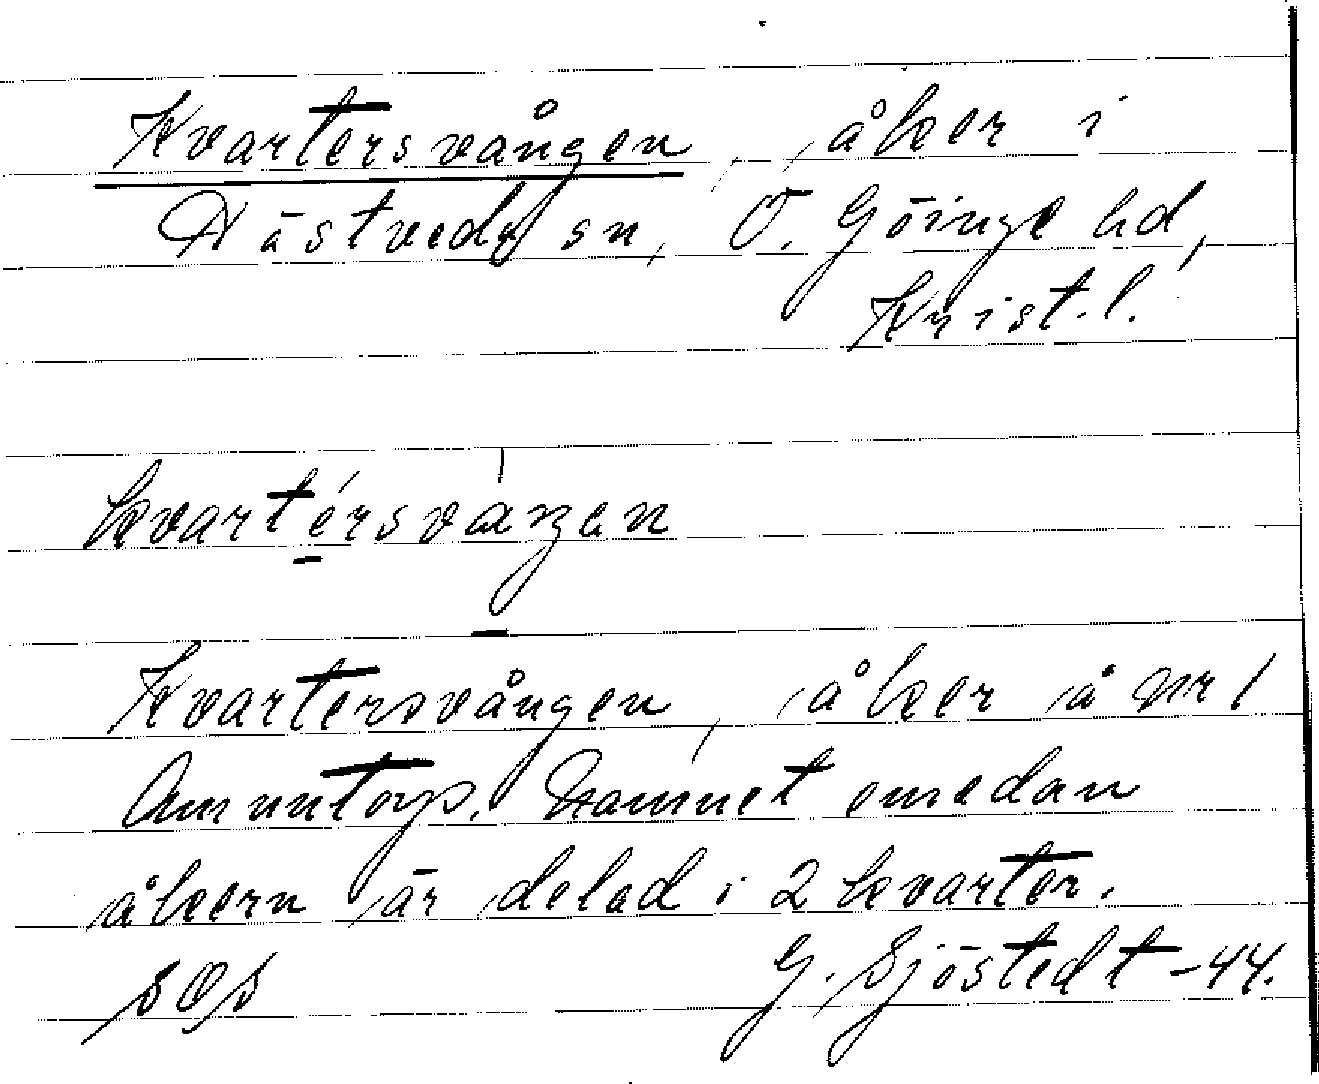 Kvartersvången, åker i
Hästveda sn, Ö. Göinge hd,
Krist. l.
kvartérsvàngen
Kvartersvången, åker å nr 1
Amuntorp. Namnet emedan
åkern är delad i 2 kvarter.
SOS G. Sjöstedt -44.